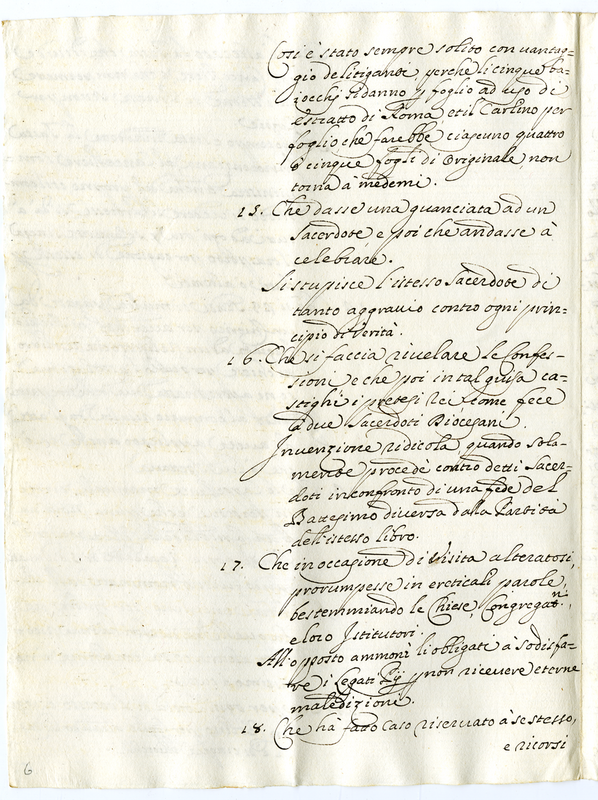 Cosi è stato sempre solito con vantag=
gio de litiganti, perche li cinque ba=
jocchj si danno p foglio ad uso di
estratto di Roma, et il Carlino per
foglio che farebbe ciascuno quattro
ò cinque fogli di originale, non
torna à medemi.
15. Che dasse una guanciata ad un
Sacerdote e poi che andasse à
celebrare.
Si stupisce l'istesso Sacerdote di
tanto aggravio contro ogni prin=
cipio di verità.
16. Che si faccia rivelare le Confes=
sioni e che poi in tal guisa ca=
stighi i pretesi Rei, come fece
à due Sacerdoti Diocesani.
Invenzione ridicola, quando sola=
mente procedè contro detti Sacer=
doti in confronto di una fede del
Battesimo diversa dalla Partita
dell'istesso libro.
17. Che in occasione di Visita alteratosi,
prorumpesse in ereticali parole,
bestemmiando le Chiese, Congregatni,
e loro Istitutori.
All'opposto ammonì li obligati à sodisfa=
re i Legati Pij p non ricevere eterne
maledizioni.
18. Che hà fatto Caso riservato à se stesso,
e ricorsi
6